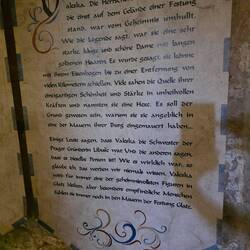 Valeska. Die Herrsche
die einst auf dem Gelände einer Festung
stand, war vom Geheimnis umhüllt.
Wie die Legende sagt, war sie eine sehr
starke, kluge und schöne Dame mit langen
goldenen Haaren. Es wurde gesagt, sie könnte
mit ihrem Eisenbogen bis zu einer Entfernung von
vielen Kilometern schießen. Viele sahen die Quelle ihrer
einzigartigen Schönheit und Stärke in unheilvollen
Kräften und nannten sie eine Hexe. Es soll der
Grund gewesen sein, warum sie angeblich in
eine der Mauern ihrer Burg eingemauert
Einige Leute sagen, dass Valeska die Schwester der
Prager Gründerin Libuše war. Und die anderen sagen,
dass es dieselbe Person ist! Wie es wirklich war, so
glaube ich, das werden wir niemals wissen. Valeska
wird für immer eine der geheimnisvollsten Figuren in
Glatz bleiben, aber besonders empfindliche Menschen
fühlen sie immer noch in den Mauern der Festung Glatz.